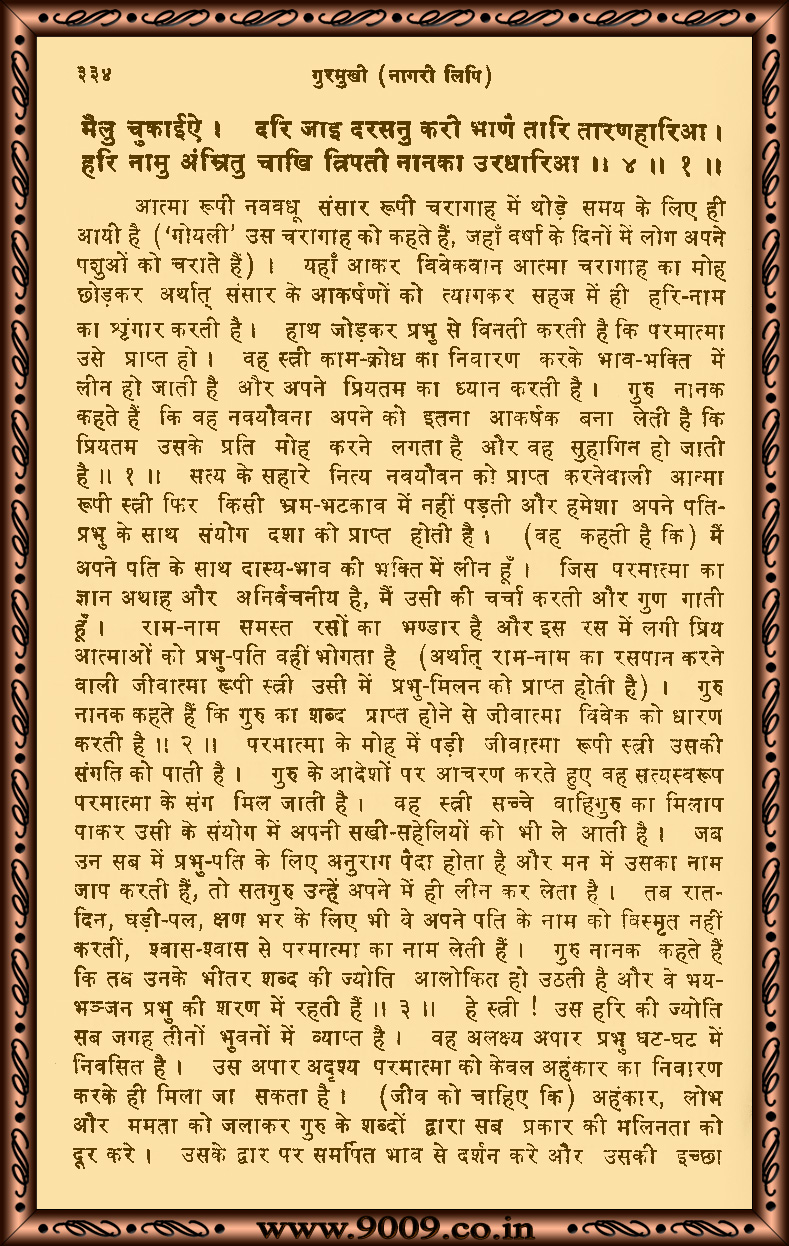 ३३४ गुरमुखी (नागरी लिपि)
मैलु चुकाईऐ । दरि जाइ दरसनु करी भाणै तारि तारणहारिआ ।
हरि नामु अंम्रितु चाखि त्रिपती नानका उरधारिआ ॥ ४ ॥ १ ॥
आत्मा रूपी नववधू संसार रूपी चरागाह में थोड़े समय के लिए ही
आयी है (‘गोयली’ उस चरागाह को कहते हैं, जहाँ वर्षा के दिनों में लोग अपने
पशुओं को चराते हैं) । यहाँ आकर विवेकवान आत्मा चरागाह का मोह
छोड़कर अर्थात् संसार के आकर्षणों को त्यागकर सहज में ही हरि-नाम
का श्रृंगार करती है । हाथ जोड़कर प्रभु से विनती करती है कि परमात्मा
उसे प्राप्त हो । वह स्त्री काम-क्रोध का निवारण करके भाव-भक्ति में
लीन हो जाती है और अपने प्रियतम का ध्यान करती है । गुरु नानक
कहते हैं कि वह नवयौवना अपने को इतना आकर्षक बना लेती है कि
प्रियतम उसके प्रति मोह करने लगता है और वह सुहागिन हो जाती
है ॥ १ ॥ सत्य के सहारे नित्य नवयौवन को प्राप्त करनेवाली आत्मा
रूपी स्त्री फिर किसी भ्रम-भटकाव में नहीं पड़ती और हमेशा अपने पति-
प्रभु के साथ संयोग दशा को प्राप्त होती है । (वह कहती है कि) मैं
अपने पति के साथ दास्य-भाव की भक्ति में लीन हूँ । जिस परमात्मा का
ज्ञान अथाह और अनिर्वचनीय है, मैं उसी की चर्चा करती और गुण गाती
हूँ । राम-नाम समस्त रसों का भण्डार है और इस रस में लगी प्रिय
आत्माओं को प्रभु-पति वहीं भोगता है (अर्थात् राम-नाम का रसपान करने
वाली जीवात्मा रूपी स्त्री उसी में प्रभु-मिलन को प्राप्त होती है) । गुरु
नानक कहते हैं कि गुरु का शब्द प्राप्त होने से जीवात्मा विवेक को धारण
करती है ॥ २ ॥ परमात्मा के मोह में पड़ी जीवात्मा रूपी स्त्री उसकी
संगति को पाती है । गुरु के आदेशों पर आचरण करते हुए वह सत्यस्वरूप
परमात्मा के संग मिल जाती है । वह स्त्री सच्चे वाहिगुरु का मिलाप
पाकर उसी के संयोग में अपनी सखी-सहेलियों को भी ले आती है । जब
उन सब में प्रभु-पति के लिए अनुराग पैदा होता है और मन में उसका नाम
जाप करती हैं, तो सतगुरु उन्हें अपने में ही लीन कर लेता है । तब रात-
दिन, घड़ी-पल, क्षण भर के लिए भी वे अपने पति के नाम को विस्मृत नहीं
करतीं, श्वास-श्वास से परमात्मा का नाम लेती हैं । गुरु नानक कहते हैं
कि तब उनके भीतर शब्द की ज्योति आलोकित हो उठती है और वे भय-
भञ्जन प्रभु की शरण में रहती हैं ॥ ३ ॥ हे स्त्री ! उस हरि की ज्योति
सब जगह तीनों भुवनों में व्याप्त है । वह अलक्ष्य अपार प्रभु घट-घट में
निवसित है । उस अपार अदृश्य परमात्मा को केवल अहंकार का निवारण
करके ही मिला जा सकता है । (जीव को चाहिए कि) अहंकार, लोभ
और ममता को जलाकर गुरु के शब्दों द्वारा सब प्रकार की मलिनता को
दूर करे । उसके द्वार पर समर्पित भाव से दर्शन करे और उसकी इच्छा
www.9009.co.in